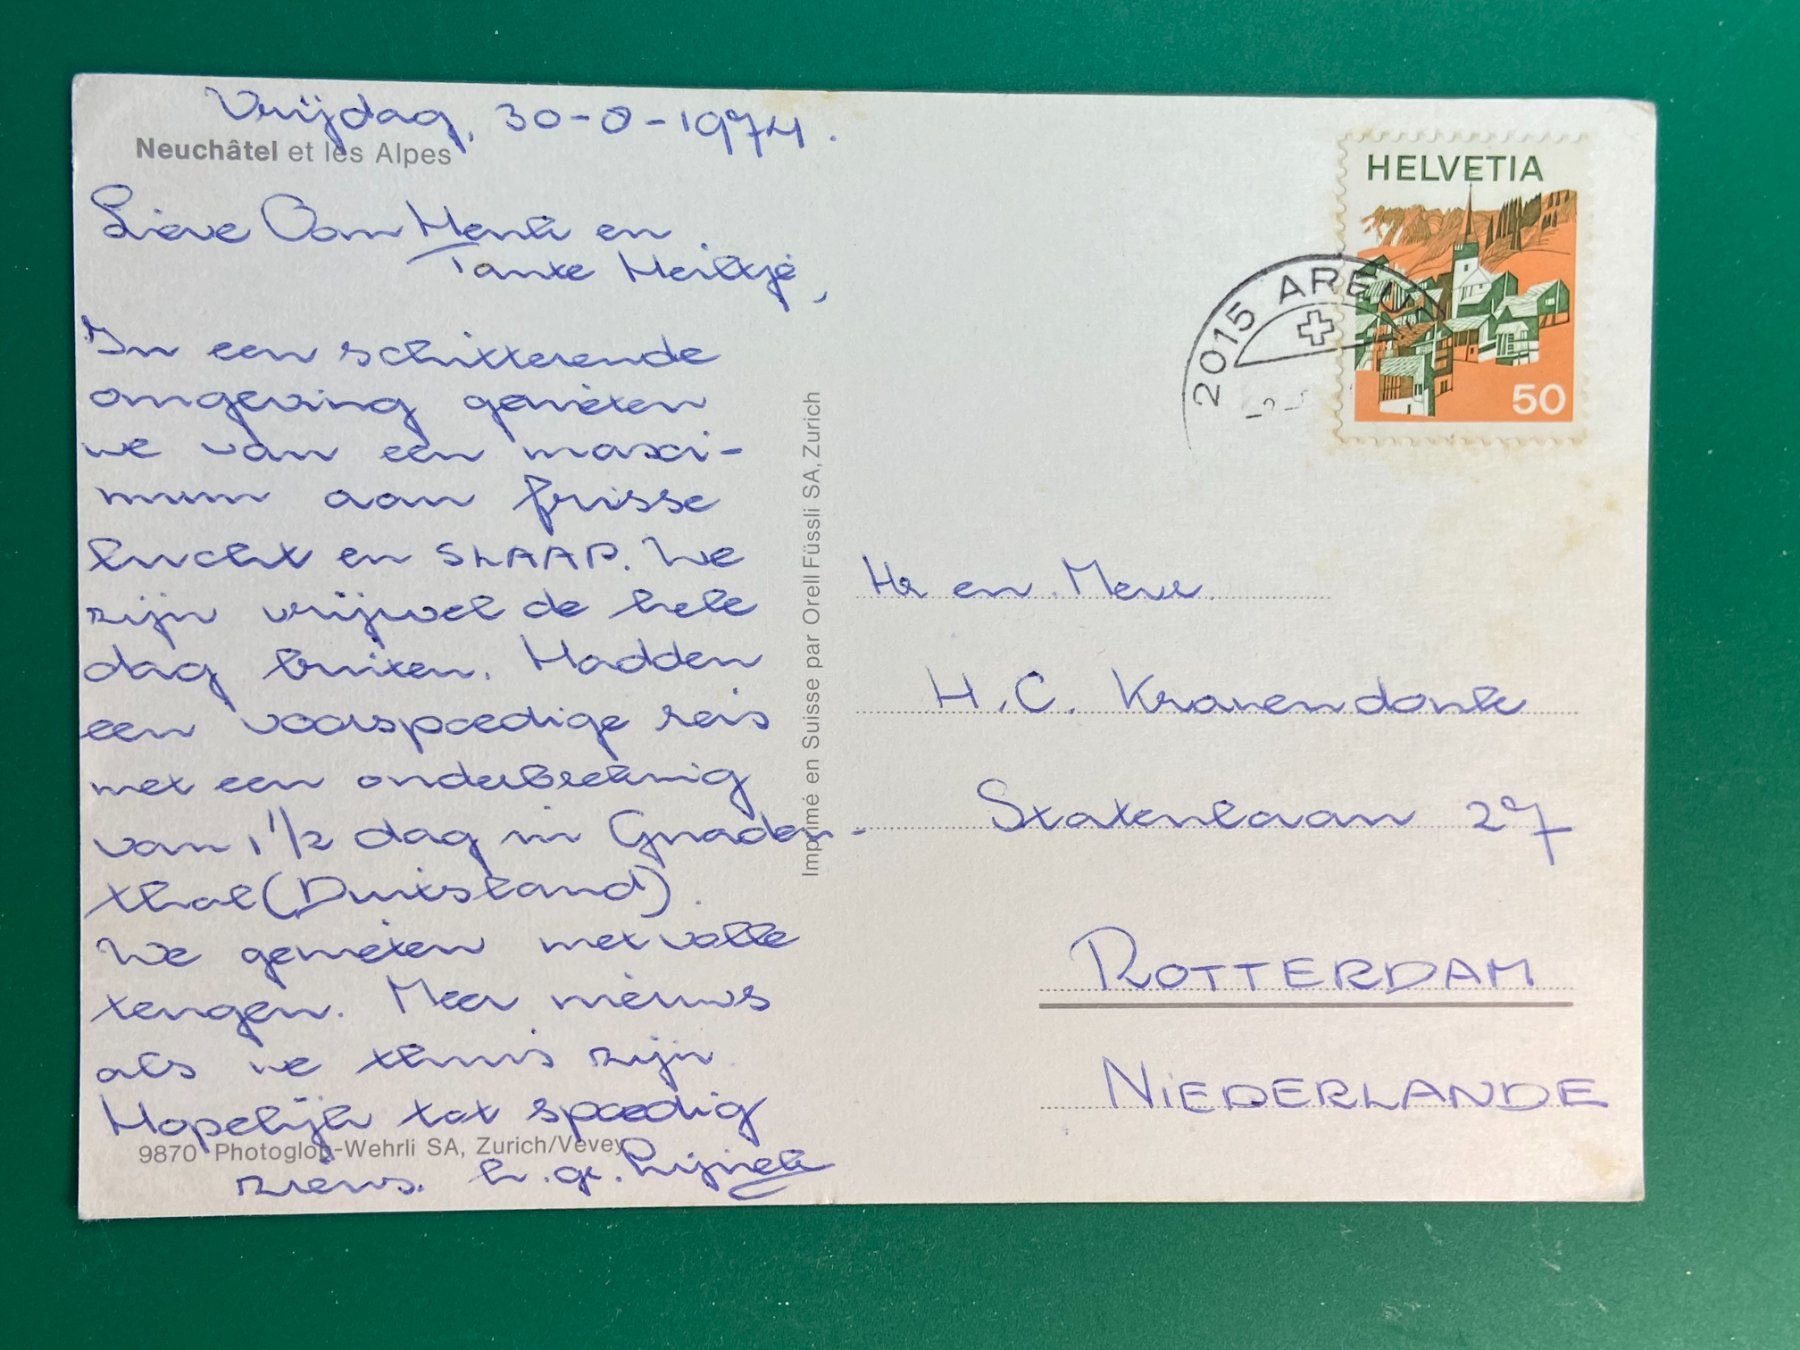 Vrijdag, 30-8-1974.
Neuchâtel et les Alpes
Lieve Oom Henk en
Tante Heiltje,
In een schitterende
omgeving genieten
we van een maxi-
mum aan frisse
lucht en SLAAP. We
zijn vrijwel de hele
dag buiten. Hadden
een voorspoedige reis
met een onderbreking
van 1 1/2 dag in Gnaden-
thal (Duitsland).
We genieten met volle
teugen. Meer nieuws
als we thuis zijn.
Hopelijk tot spoedig
9870 Photoglob-Wehrli SA, Zurich/Vevey
ziens. h. gr.
Imprimé en Suisse par Orell Füssli SA, Zurich
HELVETIA
50
2015 AREUSE
Hr en Mevr.
H.C. Kranendonk
Statenlaan 27
ROTTERDAM
NIEDERLANDE